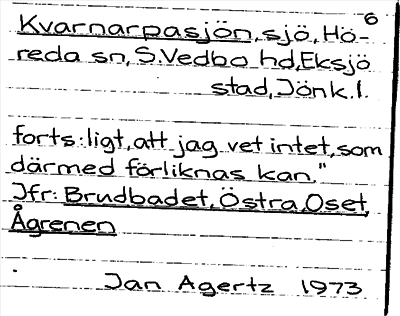 6
Kvarnarpasjön, sjö, Hö-
reda sn, S.Vedbo hd, Eksjö
stad, Jönk.l.
forts: ligt, att jag vet intet, som
därmed förliknas kan."
Jfr: Brudbadet, Östra, Oset,
Ågrenen
Jan Agertz 1973